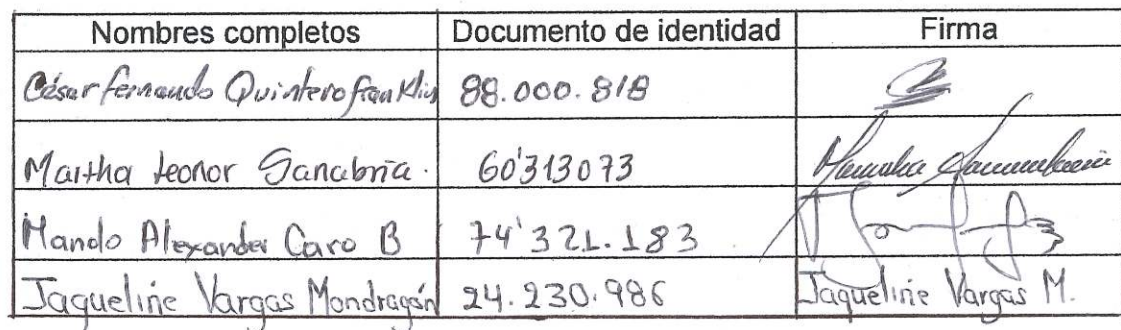 Nombres completos Documento de identidad Firma
César Fernando Quintero Franklin 88.000.818
Martha Leonor Sanabria. 60'313073
Mando Alexander Caro B 74'321.183
Jaqueline Vargas Mondragón 24.230.986 Jaqueline Vargas M.